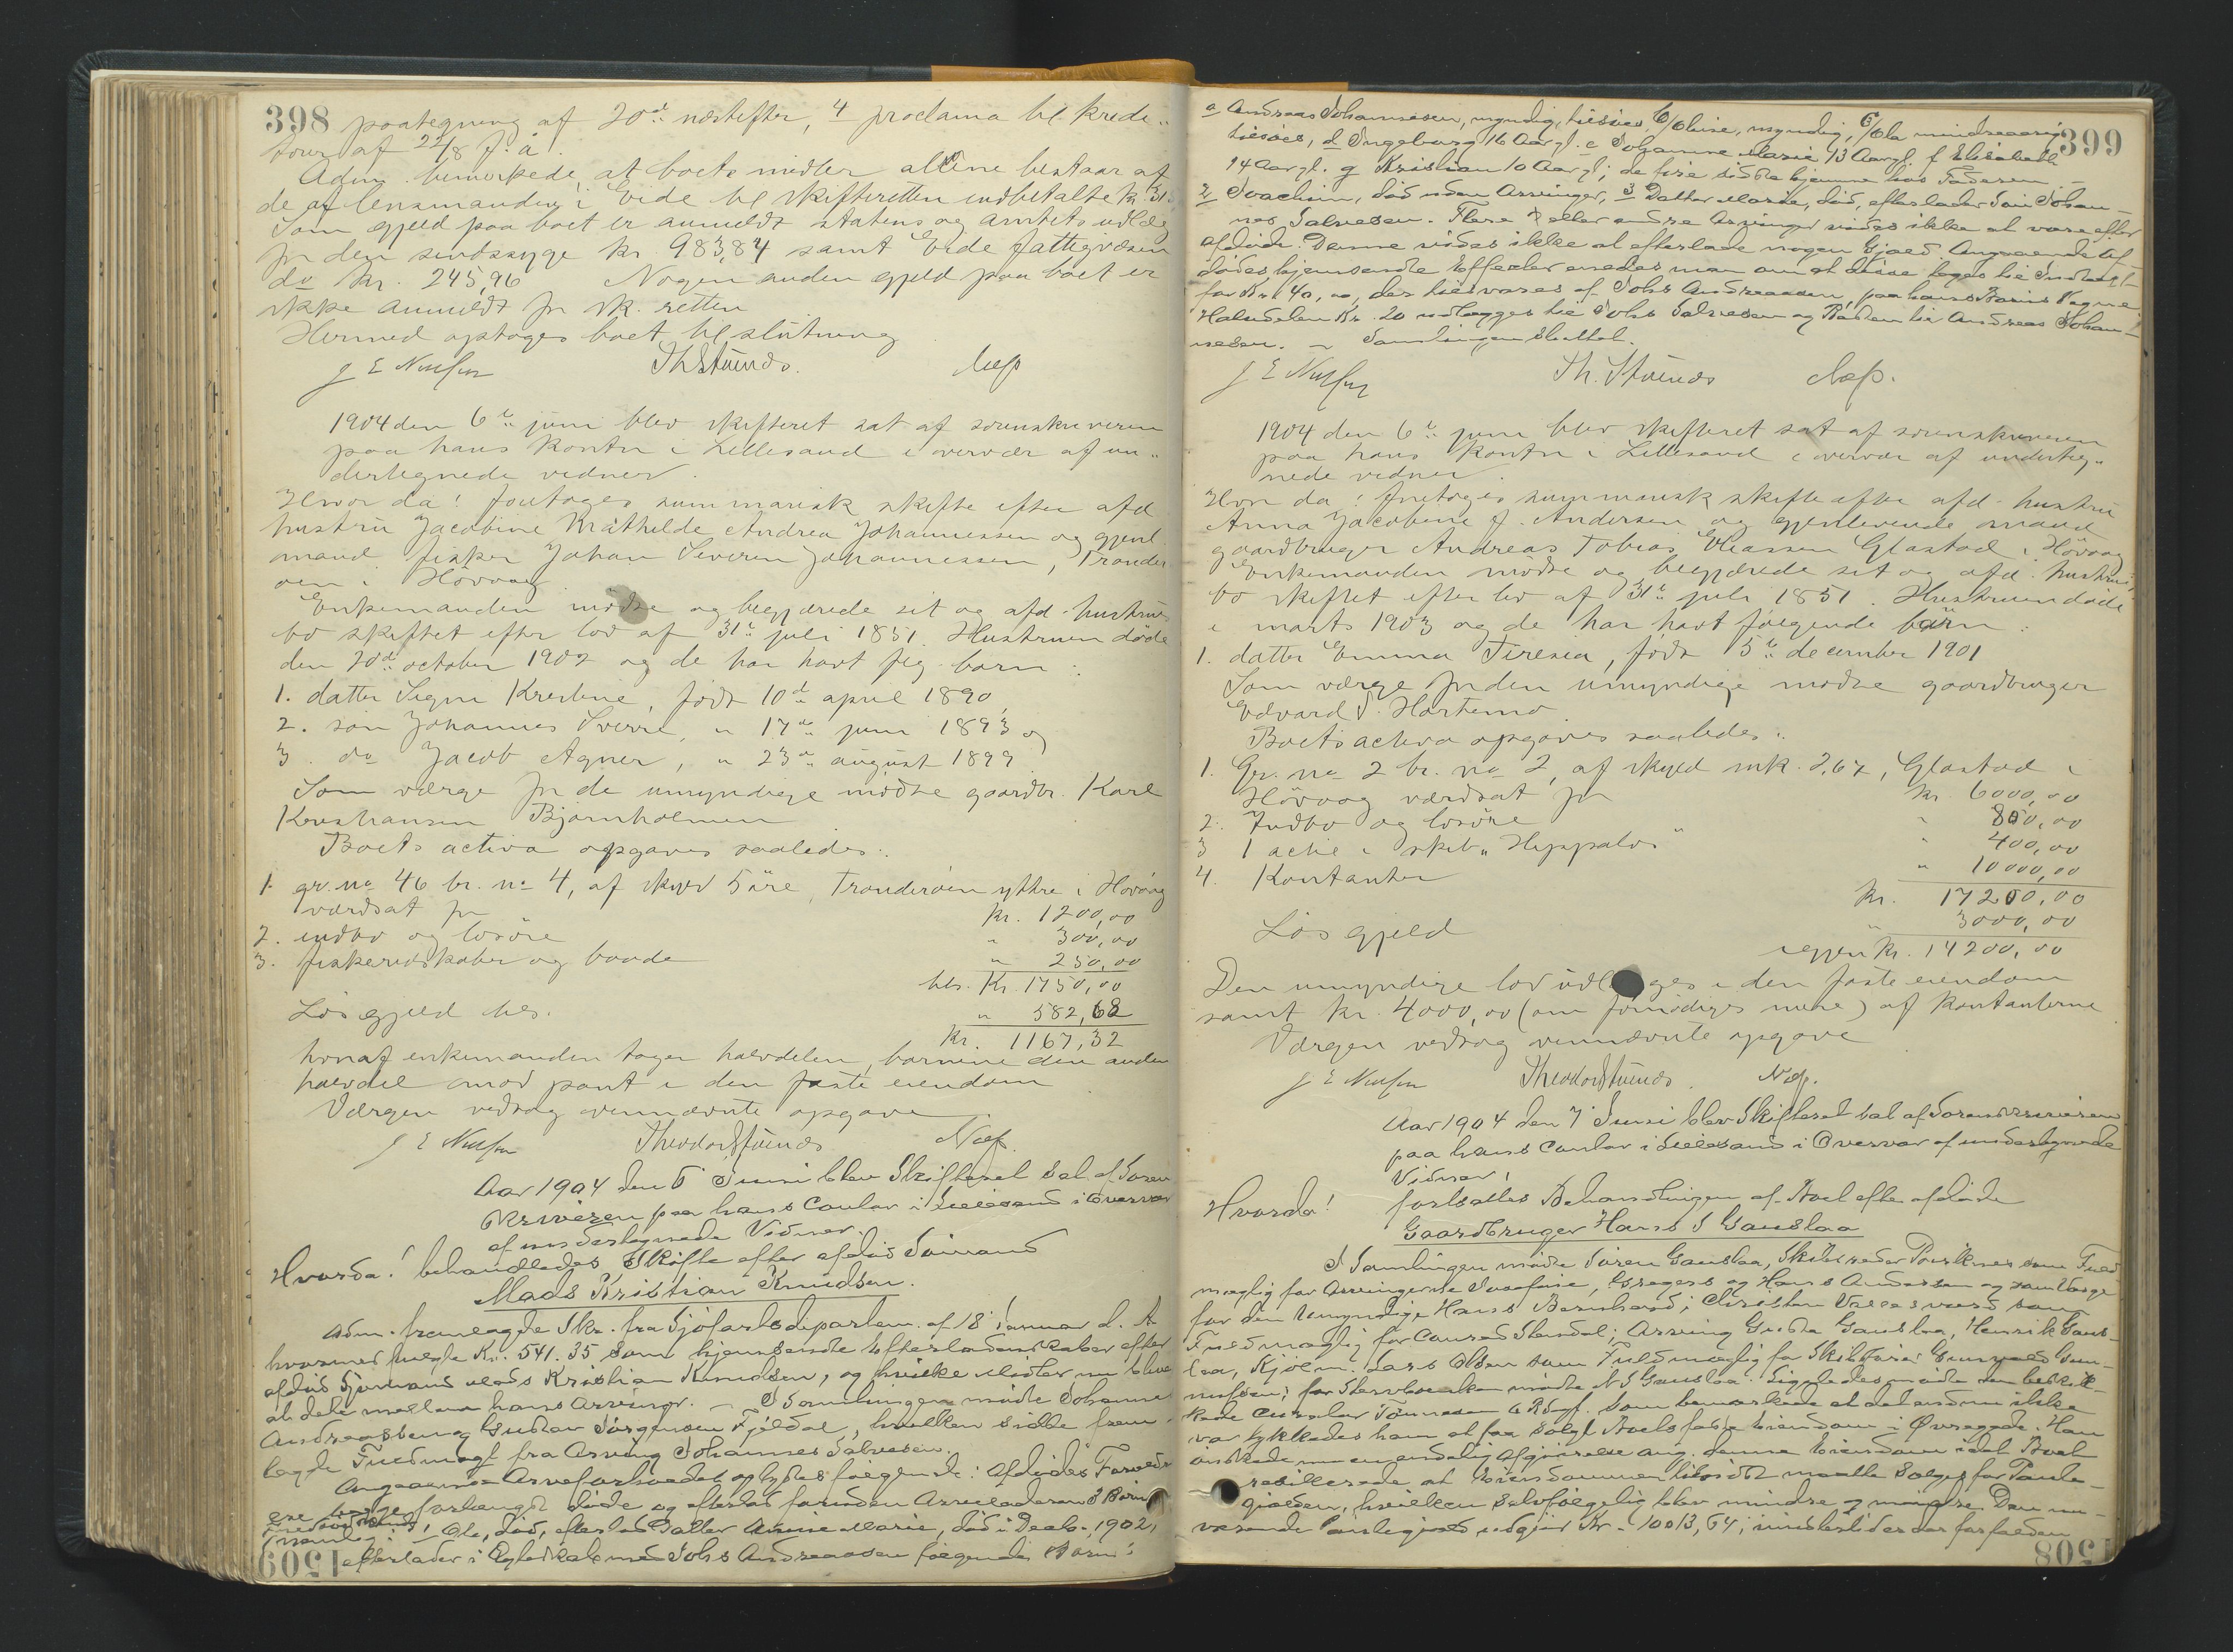 398 paategning af 20de næstefter, 4 proclama til kredi„
torer af 22/8 f. å.
Adm. bemerkede, at boets midler alene bestaar af
de af lensmanden i Eide til skifteretten indbetalte kr. 31.
Som gjeld paa boet er anmeldt statens og amtets udlæg
for den sindssyge kr. 983,84 samt Eide fattigvæsen
do kr. 245,96 Nogen anden gjeld paa boet er
ikke anmeldt for sk. retten
Hermed optoges boet til slutning
J E Nielsen Th Stuends.
1904 den 6te juni blev skifteret sat af sorenskriveren
paa hans kontor i Lillesand i overvær af un„
dertegnede vidner.
Hvor da! foretoges summarisk skifte efter afd
hustru Jacobine Mathilde Andrea Johannessen og gjenl.
mand fisker Johan Severin Johannessen, Trander
øen i Høvaag
Enkemanden mødte og begjærede sit og afd. hustrus
bo skiftet efter lov af 31te juli 1851. Hustruen døde
den 20de october 1902 og de har havt følg. børn:
1. datter Signe Kristine, født 10de april 1890,
2. søn Johannes Sverre, „ 17de juni 1893 og
3. do Jacob Agner, „ 23de august 1899
Som værge for de umyndige mødte gaardbr. Karl
Kristiansen Bjørnholmen
Boets activa opgaves saaledes:
1. gr. no 46 br. no 4, af skyld 5 øre, Tranderøen yttre i Høvaag
værdsat for kr. 1200,00
2. indbo og løsøre „ 300,00
3. fiskeredskaber og baade „ 250,00
tils. Kr. 1750,00
Løs gjeld tils. „ 582,68
Kr. 1167,32
hvoraf enkemanden tager halvdelen, børnene den anden
halvdel mod pant i den faste eiendom
Værgen vedtog ovennævnte opgave
J E Nielsen Theodor Stuends
Aar 1904 den 6 Juni blev Skifteret sat af Soren
skriveren paa hans Contor i Lillesand i Overvær
af undertegnede Vidner.
Hvorda! behandledes Skifte efter afdød Sømand
Mads Kristian Knudsen.
Adm. fremlagde Skr. fra Sjøfartsdepartem. af 18 Januar d. A.
hvormed fulgte Kr. 541.35 som hjemsendte Efterladenskaber efter
afdød Sjømand Mads Kristian Knudsen, og hvilke Midler nu blive
at dele mellem hans Arvinger. – I Samlingen mødte Johannes
Andreassen og Gustav Jørgensen Fjeldal, hvilken sidste frem„
lagde Fuldmagt fra Arving Johannes Salvesen.
Angaaende Arveforholdet oplystes følgende: Afdødes Foræld„
re begge forlængst døde og efterlod foruden Arveladeren 3 Børn
nemlig: 1 Ole, død, efterlod Datter Anne Marie, død i Decb. 1902,
efterlader i Egteskab med Johs Andreassen følgende Børn:
1509
399
a Andreas Johannesen, myndig, tilsøes, b/ Oluise, myndig, c/ Ola mindreaarig
tilsøes, d Ingeborg 16 Aar gl. e Johanne Marie 13 Aar gl. f Elisabeth
14 Aar gl. g Kristian 10 Aar gl; de fire sidste hjemme hos Faderen. –
2 Joachim, død uden Arvinger, 3 Datter Marie, død, efterlader Søn Johan–
nes Salvesen. Flere eller andre Arvinger vides ikke at være efter
afdøde. Denne vides ikke at efterlade nogen Gjæld. Angaaende Af–
dødes hjemsendte Effecter enedes man om at disse tages til Indtægt
for Kr. 40,00, der tilsvares af Johs Andreassen, paa hans Børns Vegne
Halvdelen Kr. 20 udlægges til Johs Salvesen og Resten til Andreas Johan–
nesen. – Samlingen sluttet.
J E Nielsen Th. Stuends
1904 den 6te juni blev skifteret sat af sorenskriveren
paa hans kontor i Lillesand i overvær af underteg„
nede vidner.
Hvor da! foretoges summarisk skifte efter afd. hustru
Anna Jacobine J. Andersen og gjenlevende mand
gaardbruger Andreas Tobias Eliassen Glastad i Høvaag
Enkemanden mødte og begjærede sit og afd. hustrus
bo skiftet efter lov af 31te juli 1851. Hustruen døde
i marts 1903 og de har havt følgende børn:
1. datter Emma Tiresia, født 5te december 1901
Som værge for den umyndige mødte gaardbruger
Edvard S. Hørtemo
Boets activa opgaves saaledes:
1. Gr. no 2 br. no 2, af skyld mk. 2,67, Glastad i
Høvaag værdsat for kr. 6000,00
2. Indbo og løsøre „ 800,00
3 1 actie i skib „Hippalos“ „ 400,00
4. Kontanter „ 10000,00
kr. 17200,00
Løs gjeld 3000,00
igjen kr. 14200,00
Den umyndige lod udlægges i den faste eiendom
samt kr. 4000,00 (om fornødiges mere) af kontanterne
Værgen vedtog ovennævnte opgave
J E Nielsen Theodor Stuends.
Aar 1904 den 7 Juni blev Skifteret sat af Sorenskriveren
paa hans Contor i Lillesand i Overvær af undertegnede
Vidner!
Hvorda! fortsattes Behandlingen af Boet efter afdøde
Gaardbruger Hans S Gauslaa
I Samlingen mødte Søren Gauslaa, Skibsreder som Fuld
mægtig for Arvingerne Josefine, Gregers og Hans Andersen og som Værge
for den Umyndige Hans Bernhard; Christen som
Fuldmægtig for Conrad Stendal; Arving Gusta Gauslaa, Henrik Gaus–
laa, Kjølm. Lars Olsen som Fuldmægtig for Skibsfører Gunvald Gun–
nufsen; for Stervboenken mødte N S Gauslaa. Ligeledes mødte den beskik–
kede Curator Tønnesen O R Sagf. som bemærkede at det endnu ikke
var lykkedes ham at faa solgt Boets faste Eiendom i Øvregade. Han
ønskede nu en endelig Afgjørelse ang. denne Eiendom idet Boet
resikerede at Eiendommen tilsidst maatte sælges for Pante–
gjælden, hvilken selvfølgelig blev mindre og mindre. Den nu–
værende Pantegjæld udgjør Kr. 10013,64; imidlertid er der forfalden
1508